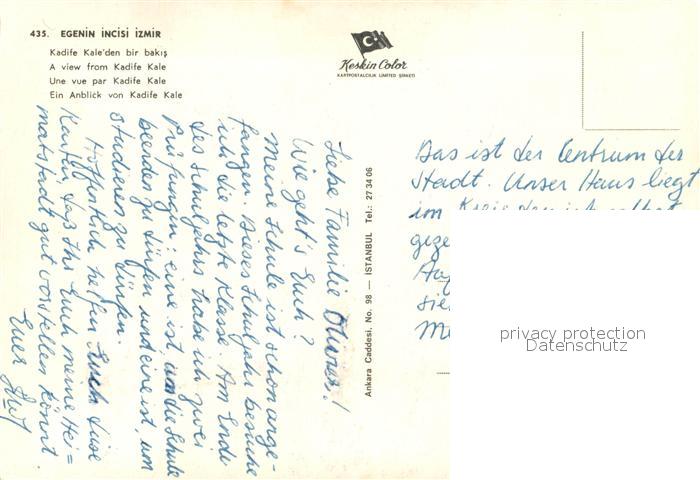 435. EGENİN İNCİSİ İZMİR
Kadife Kale'den bir bakış
A view from Kadife Kale
Une vue par Kadife Kale
Ein Anblick von Kadife Kale
Keskin Color
KARTPOSTALCILIK LIMITED ŞIRKETI
Ankara Caddesi, No. 98 — ISTANBUL Tel.: 27 34 06
Liebe Familie
Wie geht's Euch?
Meine Schule ist schon ange=
fangen. Dieses Schuljahr besuche
ich die letzte Klasse. Am Ende
des Schuljahrs habe ich zwei
Prüfungen: eine ist, um die Schule
beenden zu dürfen und eine ist, um
studieren zu dürfen.
Hoffentlich helfen Euch diese
Karten, daß Ihr Euch meine Hei=
matstadt gut vorstellen könnt
Euer
Das ist der Centrum der
Stadt. Unser Haus liegt
im
privacy protection
Datenschutz